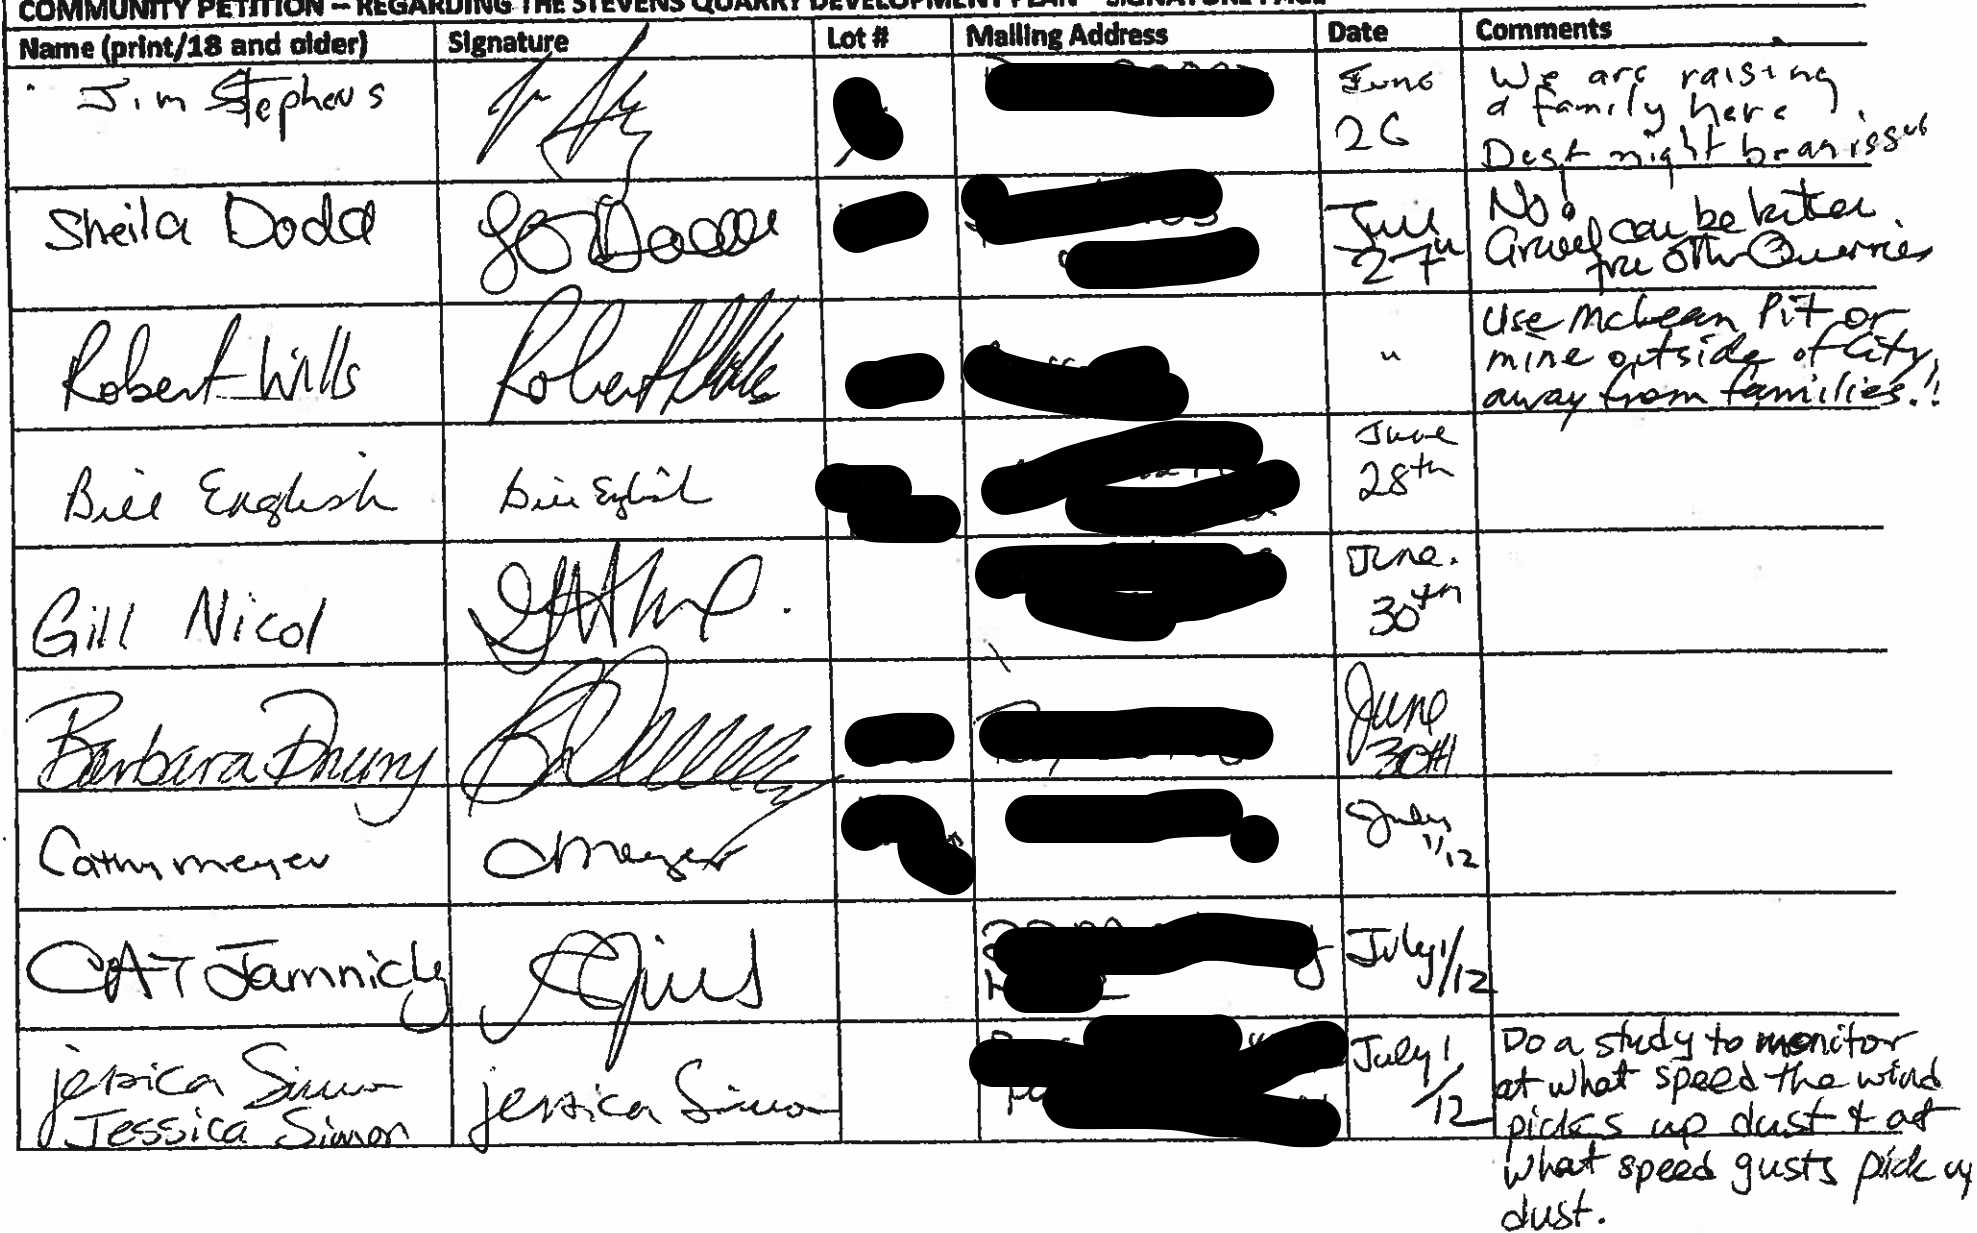 COMMUNITY PETITION – REGARDING THE STEVENS QUARRY DEVELOPMENT PLAN – SIGNATURE PAGE
Name (print/18 and older) Signature Lot # Mailing Address Date Comments
Jim Stephens June 26 We are raising
a family here.
Dust might be an issue
Sheila Dodd S Dodd June 27th No!
Gravel can be gotten
from other Querries
Robert Wills Robert Wills " Use McLean Pit or
mine outside of City,
away from families.!!
Bill English Bill English June 28th
Gill Nicol June. 30th
Barbara Drury June 30th
Cathy meyer C Meyer July 1/12
CAT Jamnicky July 1/12
jessica Simon jessica Simon July 1/12 Do a study to monitor
Jessica Simon at what speed the wind
picks up dust & at
what speed gusts pick up
dust.